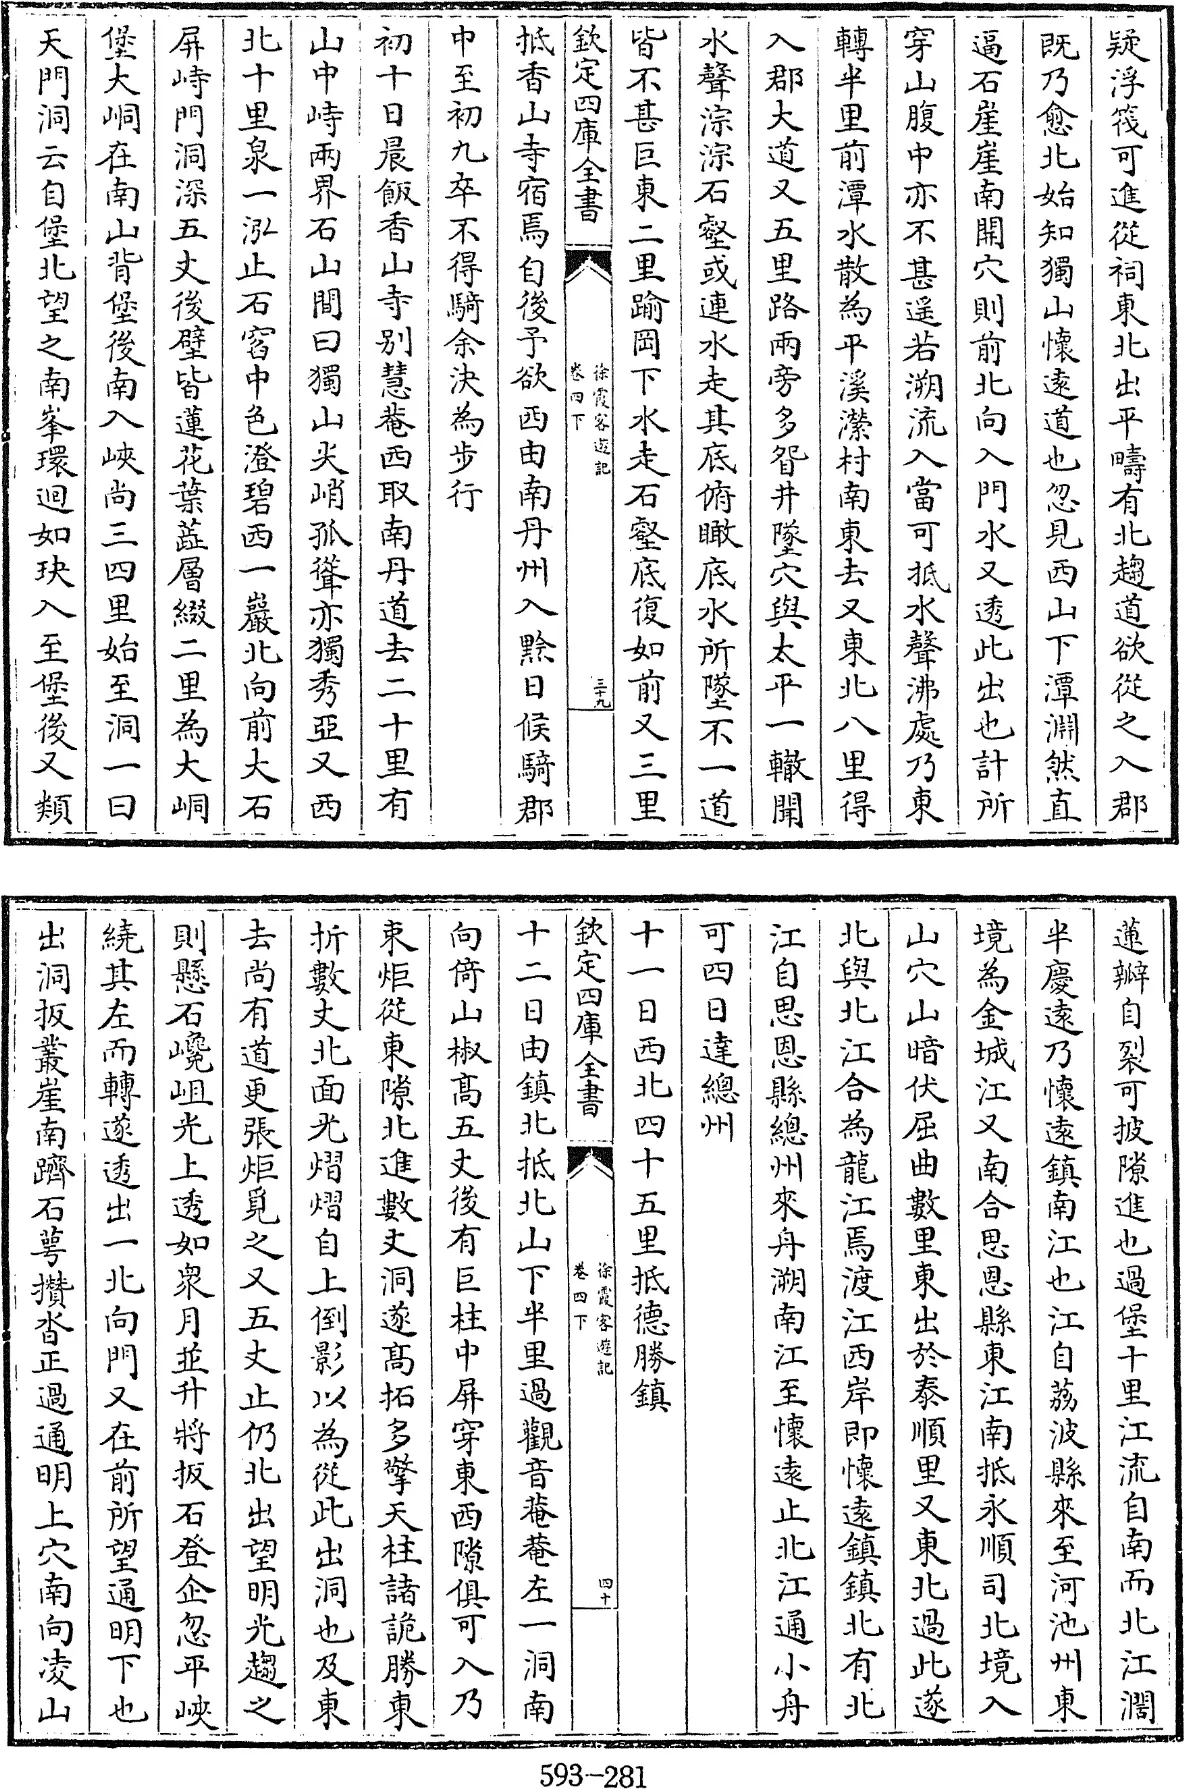 疑浮筏可進從祠東北出平疇有北趨道欲從之入郡
既乃愈北始知獨山懷遠道也忽見西山下潭淵然直
逼石崖崖南開穴則前北向入門水又透此出也計所
穿山腹中亦不甚遥若溯流入當可抵水聲沸處乃東
轉半里前潭水散為平溪瀠村南東去又東北八里得
入郡大道又五里路兩旁多眢井墜穴與太平一轍聞
水聲淙淙石壑或連水走其底俯瞰底水所墜不一道
皆不甚巨東二里踰岡下水走石壑底復如前又三里
欽定四庫全書
徐霞客遊記
卷四下
三十九
抵香山寺宿焉自後予欲西由南丹州入黔日候騎郡
中至初九卒不得騎余決為步行
初十日晨飯香山寺别慧菴西取南丹道去二十里有
山中峙兩界石山間曰獨山尖峭孤聳亦獨秀亞又西
北十里泉一泓止石窞中色澄碧西一巖北向前大石
屏峙門洞深五丈後壁皆蓮花葉蕋層綴二里為大峒
堡大峒在南山背堡後南入峽尚三四里始至洞一曰
天門洞云自堡北望之南峯環迴如玦入至堡後又類
蓮瓣自裂可披隙進也過堡十里江流自南而北江濶
半慶遠乃懷遠鎮南江也江自荔波縣來至河池州東
境為金城江又南合思恩縣東江南抵永順司北境入
山穴山暗伏屈曲數里東出於泰順里又東北過此遂
北與北江合為龍江焉渡江西岸即懷遠鎮鎮北有北
江自思恩縣總州來舟溯南江至懷遠止北江通小舟
可四日達總州
十一日西北四十五里抵德勝鎮
欽定四庫全書
徐霞客遊記
卷四下
四十
十二日由鎮北抵北山下半里過觀音菴菴左一洞南
向倚山椒高五丈後有巨柱中屏穿東西隙俱可入乃
束炬從東隙北進數丈洞遂高拓多擎天柱諸詭勝東
折數丈北面光熠熠自上倒影以為從此出洞也及東
去尚有道更張炬覓之又五丈止仍北出望明光趨之
則懸石巉岨光上透如衆月並升將扳石登企忽平峽
繞其左而轉遂透出一北向門又在前所望通明下也
出洞扳叢崖南躋石萼攅沓正過通明上穴南向凌山
593-281